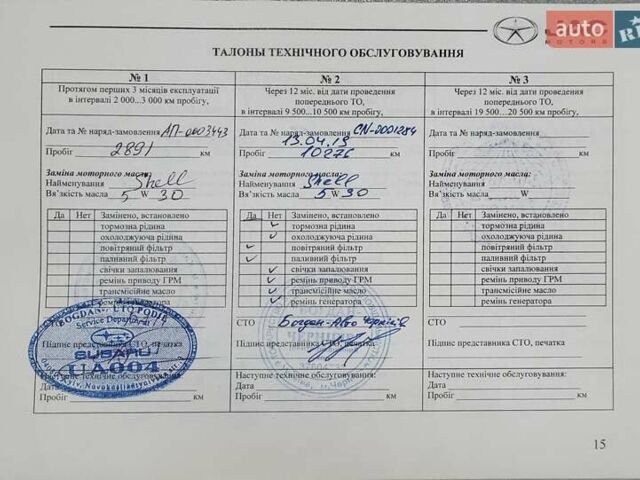 auto
RI
JAC
MOTORS
ТАЛОНЫ ТЕХНІЧНОГО ОБСЛУГОВУВАННЯ
№ 1
Протягом перших 3 місяців експлуатації
в інтервалі 2 000...3 000 км пробігу,
Дата та № наряд-замовлення АП-0003443
Пробіг 2891 км
Заміна моторного масла:
Найменування Shell
В'язкість масла 5 W 30
Да Нет Замінено, встановлено
тормозна рідина
охолоджуюча рідина
повітряний фільтр
паливний фільтр
свічки запалювання
ремінь приводу ГРМ
трансмісійне масло
ремень генератора
BOGDAN AUTO PODIL
Service Department
SUBARU
UA004
Підпис представника СТО, печатка
Наступне технічне обслуговування:
Дата
Пробіг км
№ 2
Через 12 міс. від дати проведення
попереднього ТО,
в інтервалі 9 500...10 500 км пробігу,
Дата та № наряд-замовлення CN-0001284
13.04.19
Пробіг 10276 км
Заміна моторного масла:
Найменування Shell
В'язкість масла 5 W 30
Да Нет Замінено, встановлено
тормозна рідина
охолоджуюча рідина
повітряний фільтр
паливний фільтр
свічки запалювання
ремінь приводу ГРМ
трансмісійне масло
ремінь генератора
СТО Богдан-Авто Чернігів
Підпис представника СТО, печатка
Наступне технічне обслуговування:
Дата
Пробіг км
№ 3
Через 12 міс. від дати проведення
попереднього ТО,
в інтервалі 19 500...20 500 км пробігу,
Дата та № наряд-замовлення
Пробіг км
Заміна моторного масла:
Найменування
В'язкість масла W
Да Нет Замінено, встановлено
тормозна рідина
охолоджуюча рідина
повітряний фільтр
паливний фільтр
свічки запалювання
ремінь приводу ГРМ
трансмісійне масло
ремінь генератора
СТО
Підпис представника СТО, печатка
Наступне технічне обслуговування:
Дата
Пробіг км
15